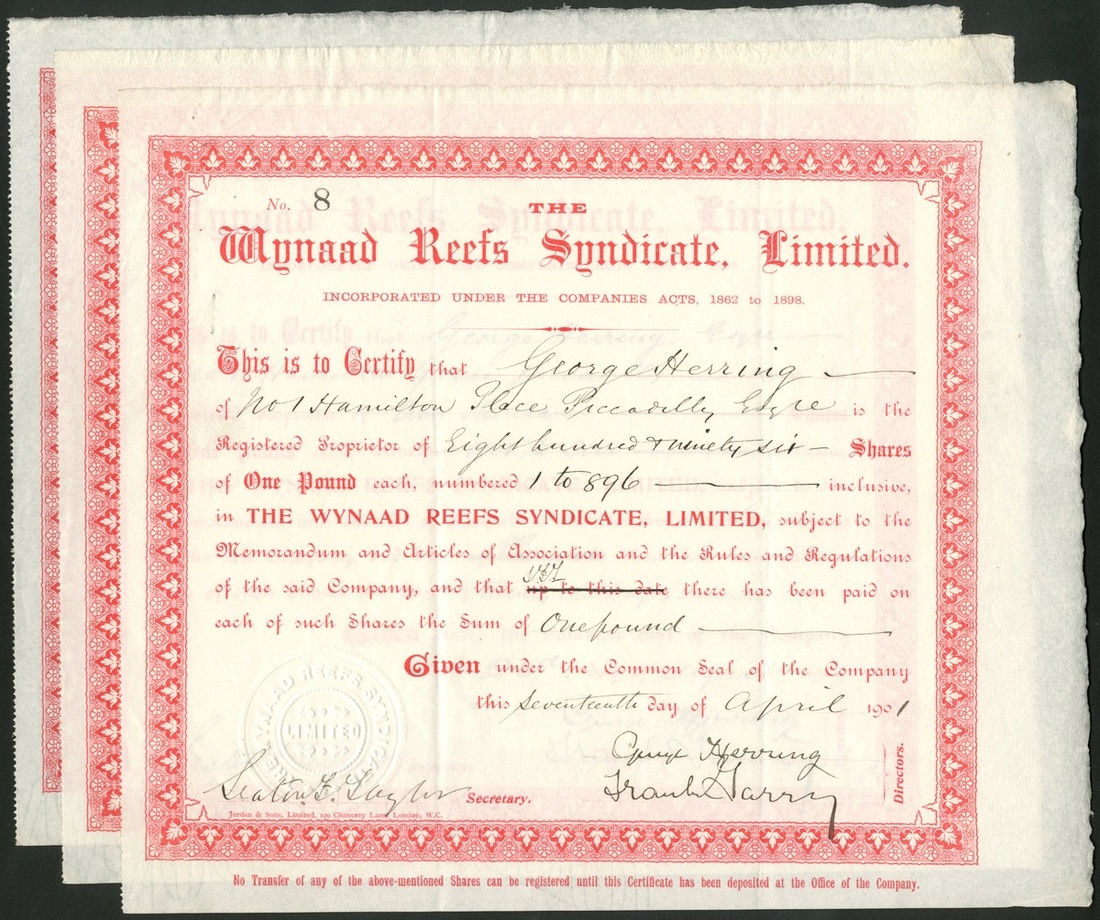 No. 8
THE
Wynaad Reefs Syndicate, Limited.
INCORPORATED UNDER THE COMPANIES ACTS, 1862 to 1898.
This is to Certify that George Herring
of No 1 Hamilton Place Piccadilly Esqre is the
Registered Proprietor of Eight hundred & ninety six Shares
of One Pound each, numbered 1 to 896 inclusive,
in THE WYNAAD REEFS SYNDICATE, LIMITED, subject to the
Memorandum and Articles of Association and the Rules and Regulations
of the said Company, and that up to this date there has been paid on
each of such Shares the Sum of One pound
Given under the Common Seal of the Company
this seventeenth day of April 1901
THE WYNAAD REEFS SYNDICATE
LIMITED
George Herring
Directors.
Secretary.
Jordan & Sons, Limited, 120 Chancery Lane, London, W.C.
No Transfer of any of the above-mentioned Shares can be registered until this Certificate has been deposited at the Office of the Company.